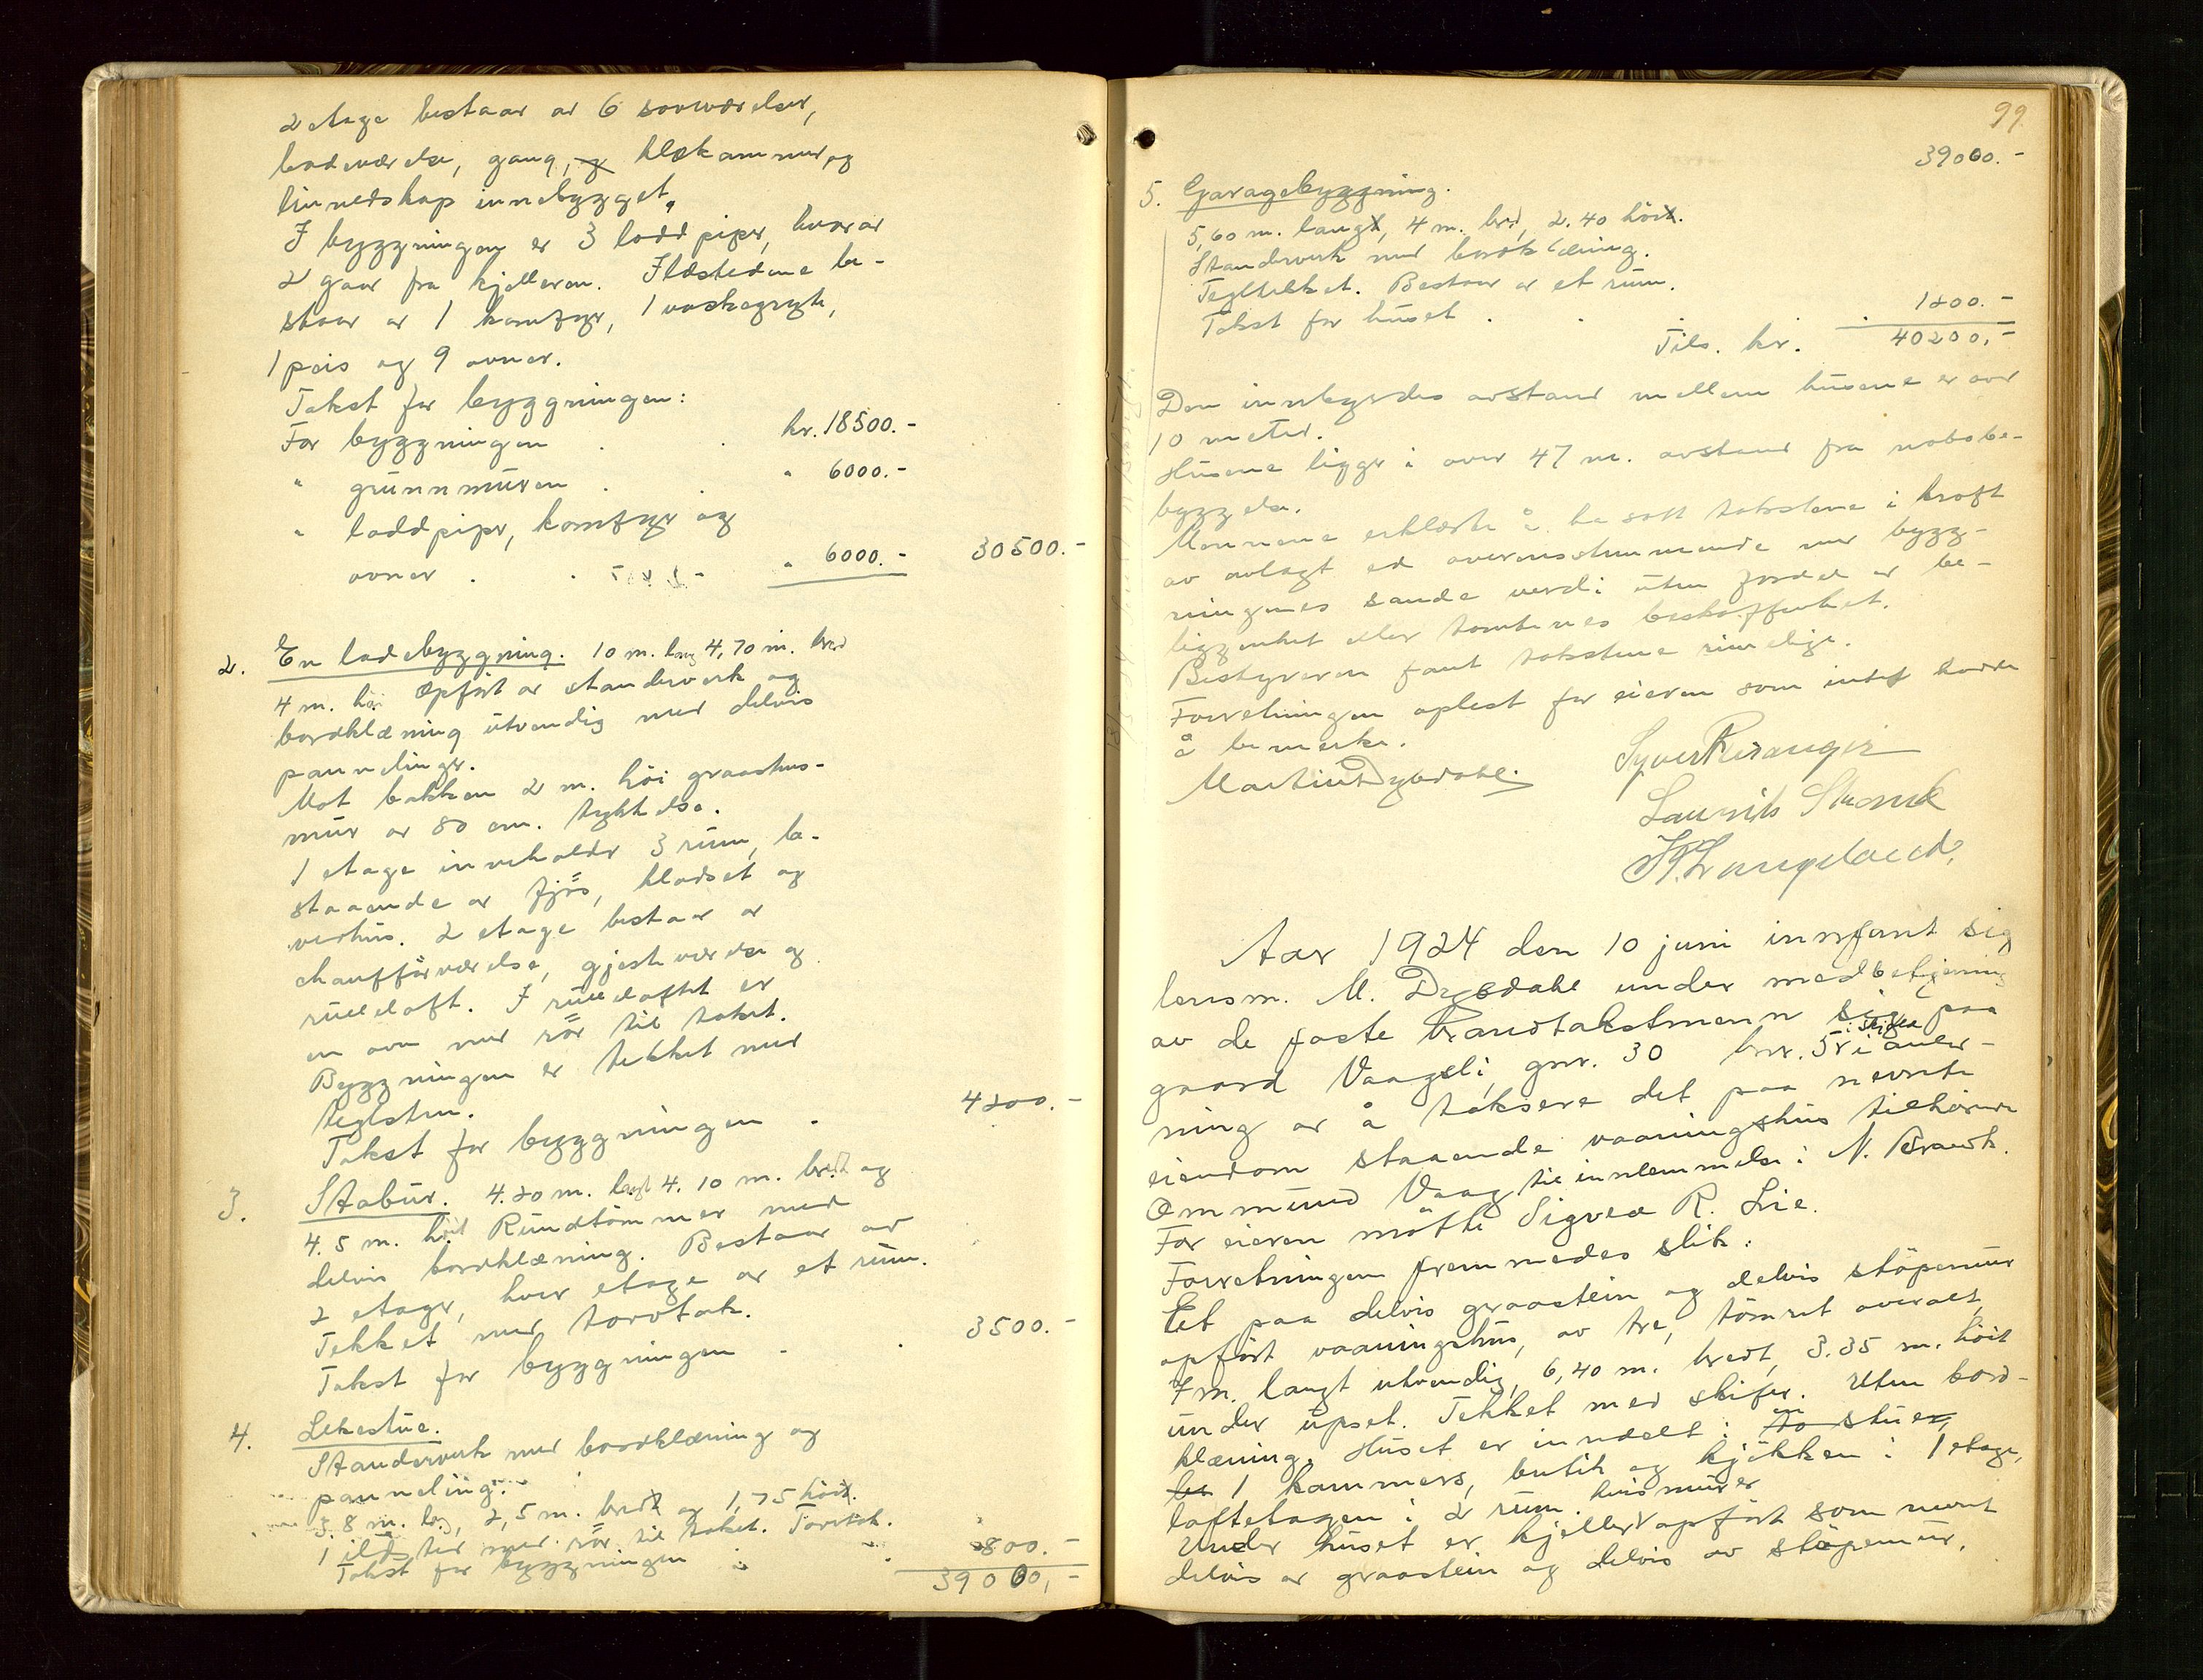 2 etage bestaar av 6 soveværelser,
badeværelse, gang, og klækammer, og
linnedskap innebygget.
I bygningen er 3 loddpiper, hvorav
2 gaar fra kjelleren. Ildstedene be-
staar av 1 komfyr, 1 vaskegryte,
1 peis og 9 ovner.
Takst for byggningen:
For byggningen . . kr. 18500.-
" grunnmuren . . " 6000.-
" loddpiper, komfyr og
ovner . . " 6000.- 30500.-
2. En ladebyggning. 10 m. lang 4,70 m. bred
4 m. høi Opført av standerverk og
bordklæning utvendig med delvis
pannelinger.
Mot bakken 2 m. høi graastens-
mur av 80 cm. tykkelse.
1 etage inneholder 3 rum, be-
staaende av fjøs, klodset og
vedhus. 2 etage bestaar av
chaufførværelse, gjesteværelse og
rulleloft. I rulleloftet er
en ovn med rør til taket.
Byggningen er tekket med
teglsten.
Takst for byggningen . 4200.-
3. Stabur. 4.20 m. langt 4.10 m. bredt og
4.5 m. høit Rundtømmer med
delvis bordklæning. Bestaar av
2 etager, hver etage av et rum.
Tekket med torvtak.
Takst for byggningen . . 3500.-
4. Lekestue.
Standerverk med bordklæning og
panneling.
3.8 m. lang, 2,5 m. bredt og 1,75 høit.
1 ildsted med rør til taket. Torvtak.
Takst for byggningen . . 800.-
39000,-
99
39000.-
5. Garagebyggning.
5,60 m. langt, 4 m. bred, 2.40 høit.
Standerverk med bordklæning.
Tegltekket. Bestaar av et rum.
Takst for huset . . . 1200.-
Tils. kr. 40200,-
Den innbyrdes avstand mellem husene er over
10 meter.
Husene ligger i over 47 m. avstand fra nabobe-
byggelse.
Mennene erklærte å ha satt takstene i kraft
av avlagt ed overensstemmende med bygg-
ningenes sande verdi uten fordel av be-
liggenhet eller tomtenes beskaffenhet.
Bestyreren fant takstene rimelige.
Forretningen oplest for eieren som intet hadde
å bemerke.
Martin Dybdahl. Syvert
Laurits
Aar 1924 den 10 juni innfant sig
lensm. M. Dybdahl under medbetjening
av de faste brandtakstmenn sig paa
gaard Vaageli, gnr. 30 bnr. 58 i anled-
ning av å taksere det paa nevnte
eiendom staaende vaaningshus tilhørende
Ommund Vaag til innlemmelse i N. Brandk.
For eieren møtte Sigved R. Lie.
Forretningen fremmedes slik:
Et paa delvis graastein og delvis støpemur
opført vaaningshus, av tre, tømret overalt,
7 m. langt utvendig, 6,40 m. bredt, 3.35 m. høit
under upset. Tekket med skifer. Uten bord-
klæning. Huset er inndelt i to stuer,
be 1 kammers, butik og kjøkken i 1 etage,
loftetagen i 2 rum. hvis mur er
Under huset er kjeller opført som nevnt
delvis av graastein og delvis av støpemur.